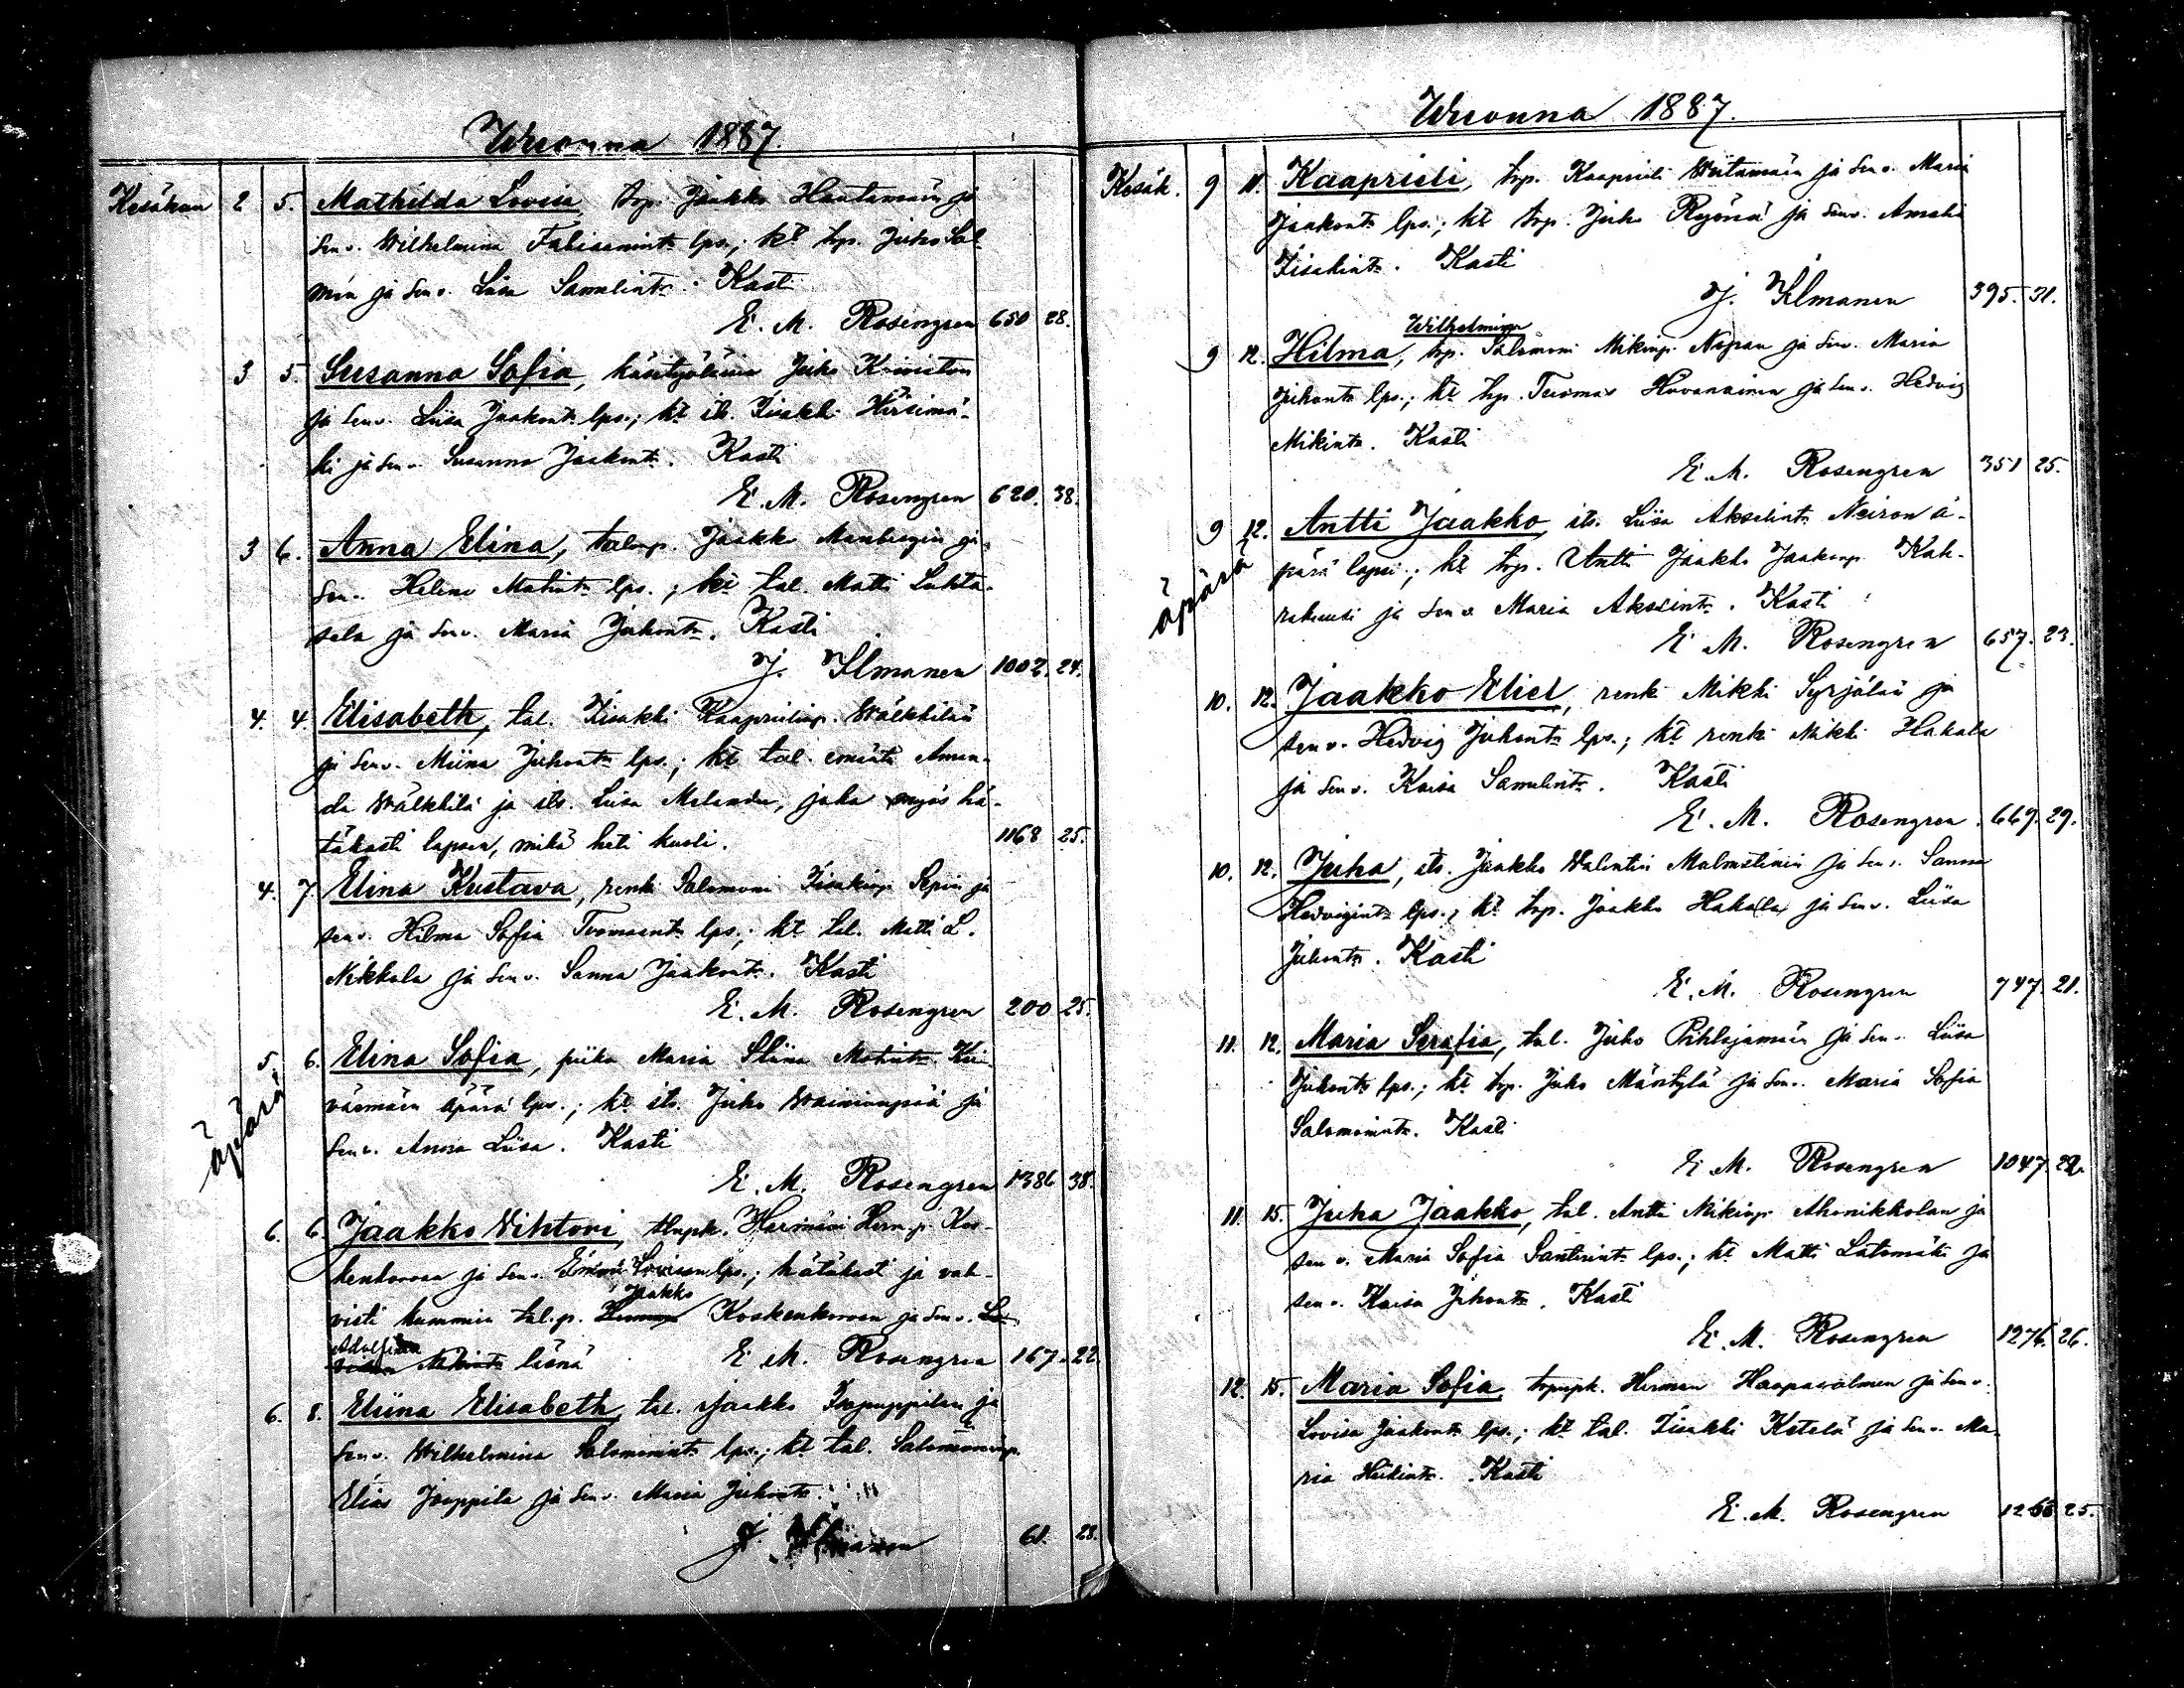 Wuonna 1887.
Kesäkuu 2 5. Mathilda Lovisa, trp. Jaakko Hautamäen ja
sen v. Wilhelmina Fabianint. lps.; kt trp. Juho Sal-
min ja sen v. Liisa Samelint. Kasti
E. M. Rosengren 650 28.
3 5. Susanna Sofia, käsityöläisen Juho Koiviston
ja sen v. Liisa Jaakont. lps.; kt its. Iisakki Hirsimä-
ki ja sen v. Susanna Jaakont. Kasti
E. M. Rosengren 620. 38.
3 6. Anna Elina, talonp. Jaakko Manbergin ja
sen v. Helena Matint. lps.; kt tal. Matti Luhta-
sela ja sen v. Maria Juhont. Kasti
J. Ilmanen 1002. 24.
4. 4. Elisabeth, tal. Iisakki Kaaprielinp. Wälkkilän
ja sen v. Miina Juhont. lps.; kt tal. emäntä Aman-
da Wälkkilä ja its. Liisa Melender, joka myös hä-
täkasti lapsen, mikä heti kuoli. 1168 25.
4. 7. Elina Kustava, renki Salomoni Iisakinp. Sepin ja
sen v. Hilma Sofia Tuomaant. lps.; kt tal. Matti L.
Nikkola ja sen v. Sanna Jaakont. Kasti
E. M. Rosengren 200 25.
5. 6. Elina Sofia, piika Maria Stiina Matint. Kui-
väsmäen äpärä lps.; kt its. Juho Wainionpää ja
sen v. Anna Liisa. Kasti
äpärä
E. M. Rosengren 1386 38.
6. 6. Jaakko Vihtori, tlnpk. Hermanni Herm.p. Kos-
kenkorvan ja sen v. Emma Lovisan lps.; hätäkast. ja vah-
Jaakko
visti kummin tal.p. Koskenkorvan ja sen v. Lo-
Adolfina
Mikint. läsnä E. M. Rosengren 167. 22.
6. 8. Eliina Elisabeth, tal. Jaakko ja
sen v. Wilhelmina Salomonint. lps.; kt tal. Salomoninp.
Elias Jouppila ja sen v. Maria Juhont.
J. Ilmanen 61. 28.
Wuonna 1887.
Kesäk. 9 11. Kaaprieli, trp. Kaaprieli Wiitamäen ja sen v. Maria
Jaakont. lps.; kt trp. Juho Ryönä ja sen v. Amalia
Iisakint. Kasti
J. Ilmanen 395. 31.
Wilhelmina
9 12. Hilma, trp. Salomoni Mikinp. Nopan ja sen v. Maria
Juhont. lps.; kt trp. Tuomas Huvonainen ja sen v. Hedvig
Mikint. Kasti
E. M. Rosengren 351 25.
9 12. Antti Jaakko, its. Liisa Akselint. Neiron ä-
pärä lapsi; kt trp. Antti Jaakko Jaakonp. Kah-
rakuusi ja sen v. Maria Akselint. Kasti
äpärä
E. M. Rosengren 657. 23.
10. 12. Jaakko Eliel, renki Mikki Syrjälän ja
sen v. Hedvig Juhont. lps.; kt renki Mikki Hakala
ja sen v. Kaisa Samelint. Kasti
E. M. Rosengren 669. 29.
10. 12. Juha, its. Jaakko Valentin Malmstinin ja sen v. Sanna
Hedvigint. lps.; kt trp. Jaakko Hakala ja sen v. Liisa
Juhont. Kasti
E. M. Rosengren 747. 21.
11. 12. Maria Serafia, tal. Juho Pihlajamäen ja sen v. Liisa
Juhont. lps.; kt trp. Juho Mäntylä ja sen v. Maria Sofia
Salomonint. Kasti
E. M. Rosengren 1047. 22.
11. 15. Juha Jaakko, tal. Antti Mikinp. Ahonikkolan ja
sen v. Maria Sofia Santerint. lps.; kt Matti Latomäki ja
sen v. Kaisa Juhont. Kasti
E. M. Rosengren 1276. 26.
12. 15. Maria Sofia, trpnpk. Herman Haapasalmen ja sen v.
Lovisa Jaakont. lps.; kt tal. Iisakki Ketelä ja sen v. Ma-
ria Heikint. Kasti
E. M. Rosengren 1266 25.